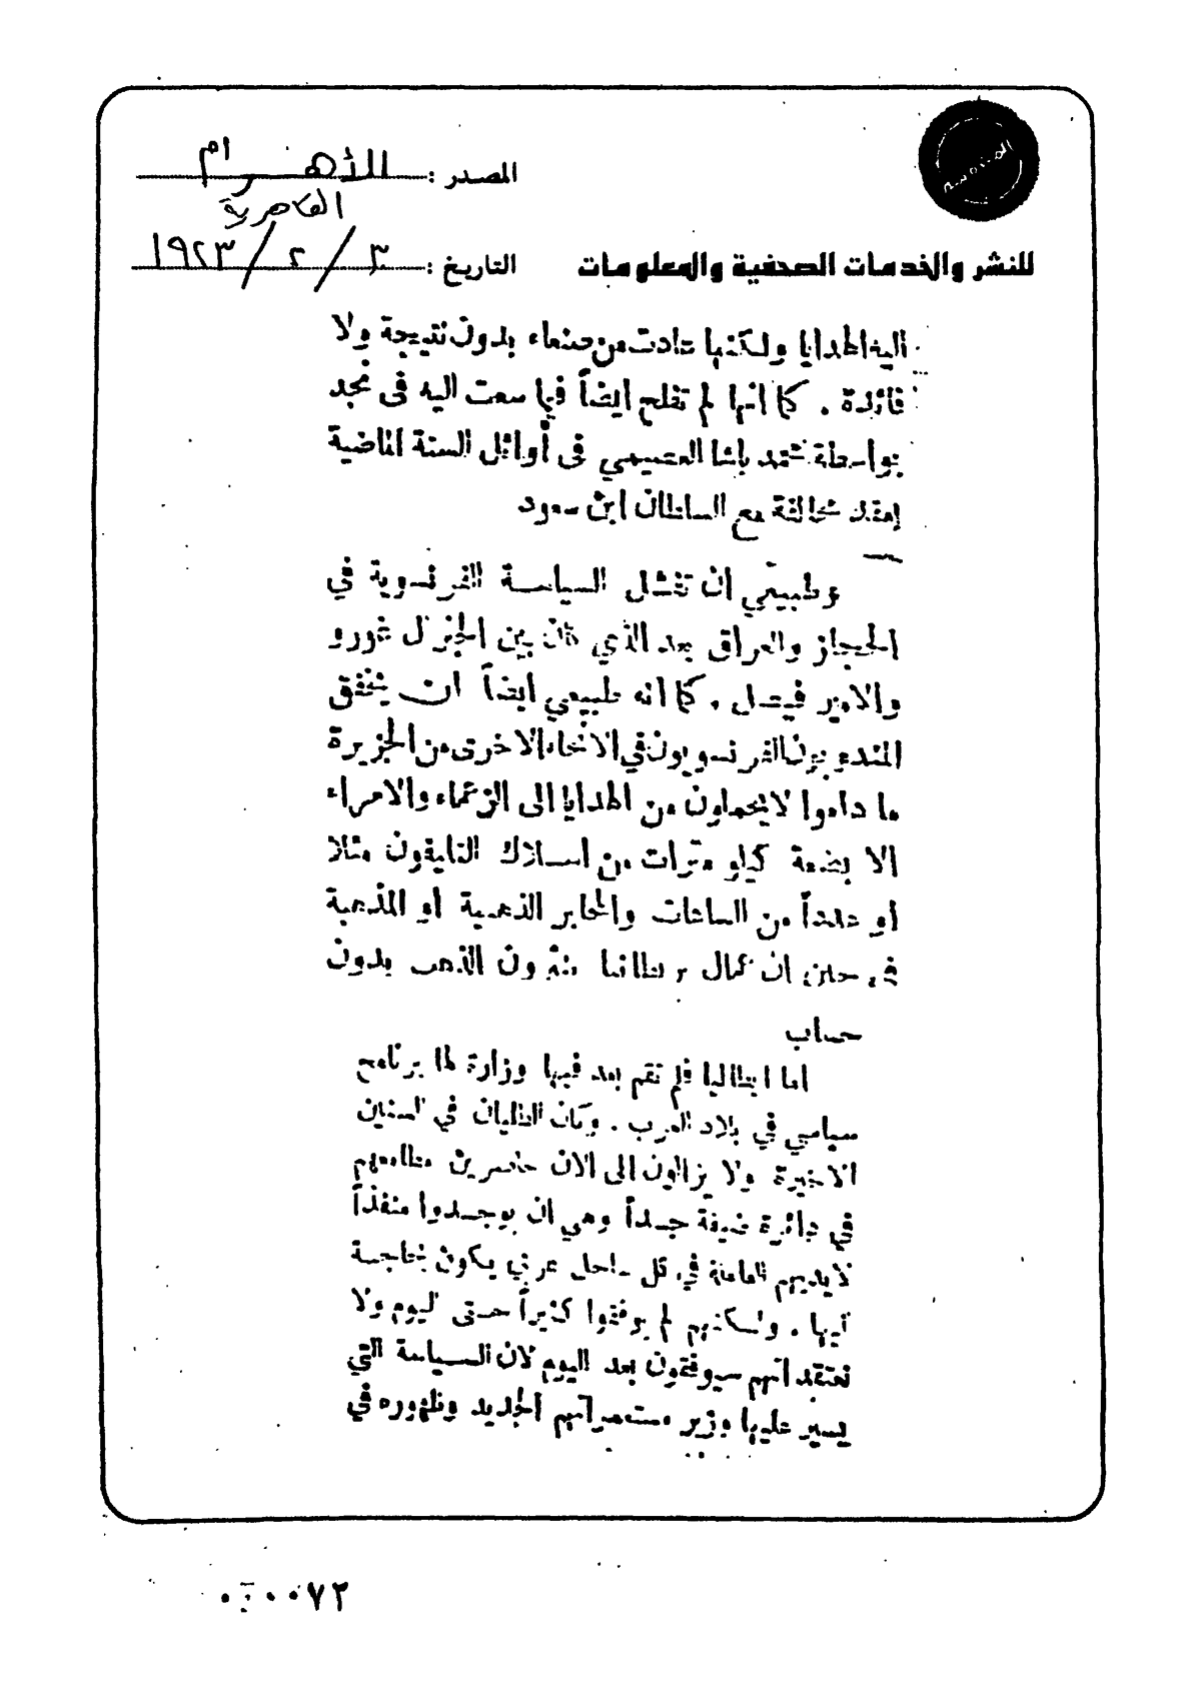 المصدر : الأهرام
القاهرية
للنشر والخدمات الصحفية والمعلومات
التاريخ : ٣/٢/١٩٢٣
اليه الهدايا ولكنها عادت من صنعاء بدون نتيجة ولا
فائدة . كما انها لم تفلح ايضاً فيما سعت اليه فى نجد
بواسطة باشا العصيمي فى أوائل السنة الماضية
لعقد محالفة مع السلطان ابن سعود
وطبيعي ان تفشل السياسة الفرنسوية في
الحجاز والعراق بعد الذي كان بين الجنرال غورو
والامير فيصل . كما انه طبيعي ايضاً ان يخفق
المندوبون الفرنسويون في الانحاء الاخرى من الجزيرة
ما داموا لا يحملون من الهدايا الى الزعماء والامراء
الا بضعة كيلو مترات من اسلاك التليفون مثلا
أو عدداً من الساعات والمحابر الذهبية أو المذهبة
في حين ان عمال بريطانيا ينثرون الذهب بدون
حساب
اما ايطاليا فلم تقم بعد فيها وزارة لها برنامج
سياسي في بلاد العرب . وكان الطليان في السنين
الاخيرة ولا يزالون الى الان حاصرين مطامعهم
في دائرة ضيقة جداً وهي ان يوجدوا منفذاً
لايديهم العاملة في كل ساحل عربي يكون بحاجة
اليها . ولكنهم لم يوفقوا كثيراً حتى اليوم ولا
نعتقد انهم سيوفقون بعد اليوم لان السياسة التي
يسير عليها وزير مستعمراتهم الجديد وظهوره في